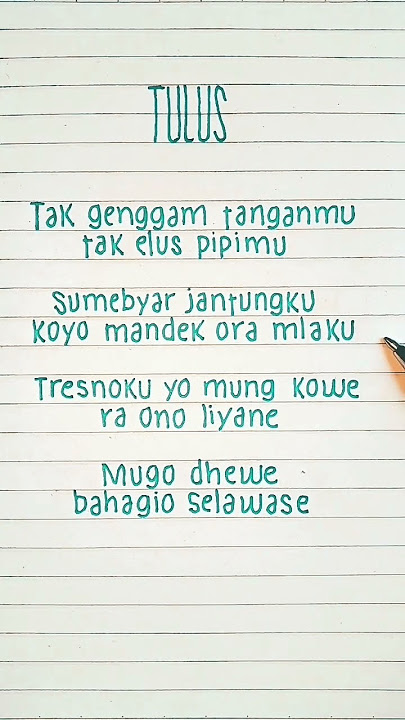 TULUS
Tak genggam tanganmu
tak elus pipimu
Sumebyar jantungku
Koyo mandek ora mlaku
Tresnoku yo mung kowe
ra ono liyane
Mugo dhewe
bahagio selawase